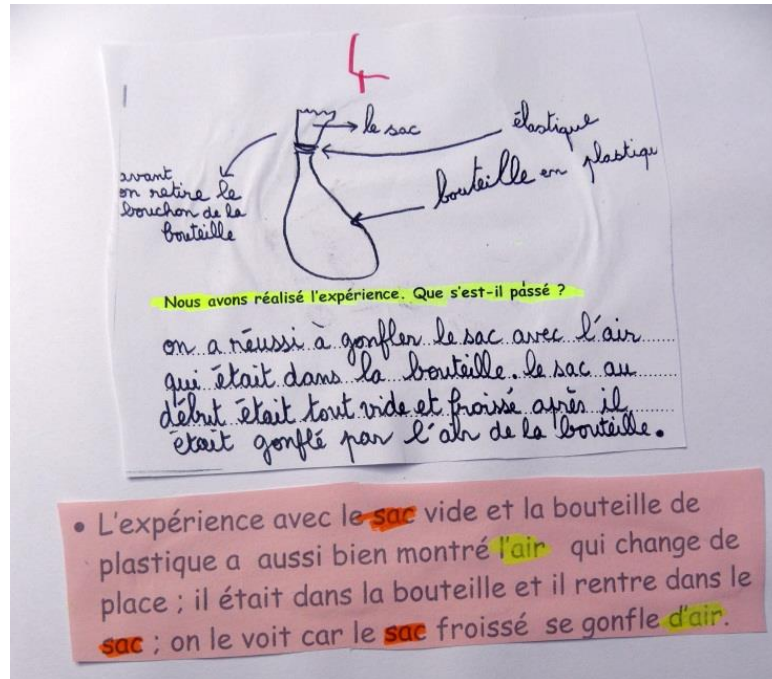 4
le sac
élastique
bouteille en plastiqu
avant
on retire le
bouchon de la
bouteille
Nous avons réalisé l'expérience. Que s'est-il passé ?
on a réussi à gonfler le sac avec l'air
qui était dans la bouteille. le sac au
début était tout vide et froissé après il
était gonflé par l'air de la bouteille.
• L'expérience avec le sac vide et la bouteille de
plastique a aussi bien montré l'air qui change de
place ; il était dans la bouteille et il rentre dans le
sac ; on le voit car le sac froissé se gonfle d'air.